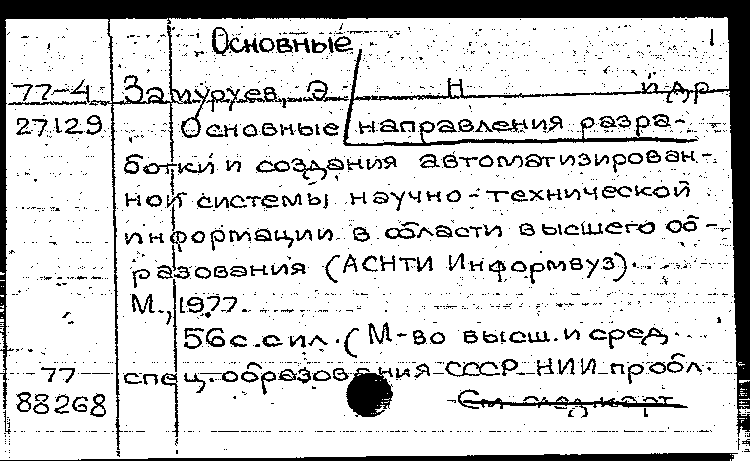 Основные 1
77-4 Замуруев, Э Н и др
27129 Основные направления разра-
ботки и создания автоматизирован-
ной системы научно-технической
информации в области высшего об-
разования (АСНТИ Информвуз).
М., 1977.
56 с. с ил. (М-во высш. и сред.
77 спец. образования СССР НИИ пробл.
88268 См. след. карт.